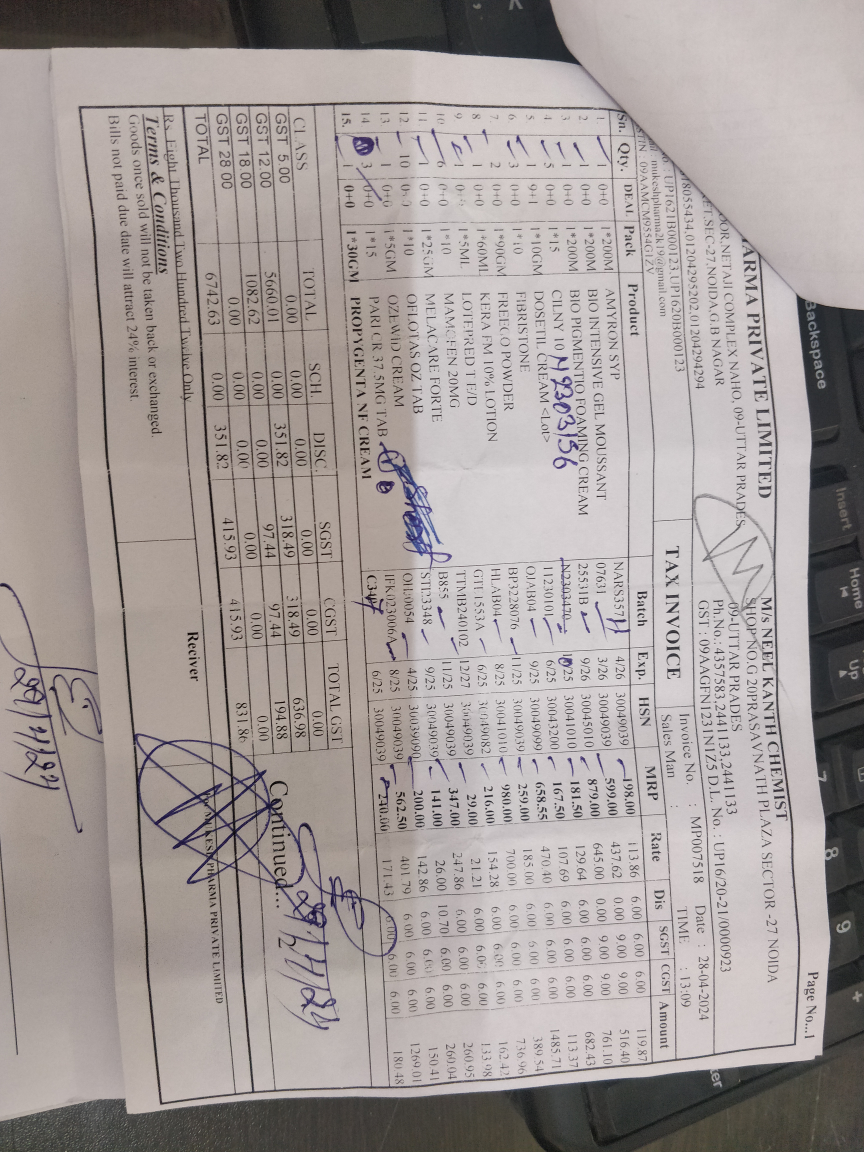 Page No...1
ARMA PRIVATE LIMITED
OOR,NETAJI COMPLEX NAHO, 09-UTTAR PRADES,
ET,SEC-27,NOIDA,G.B NAGAR
8055434,01204295202,01204294294
: UP1621B000123,UP1620B000123
mukeshpharma2k19@gmail.com
09AAMCM9554G1ZV
TAX INVOICE
M/s NEEL KANTH CHEMIST
SHOP NO.G 20PRASAVNATH PLAZA SECTOR -27 NOIDA
09-UTTAR PRADES
Ph.No.: 4357583,2441133,2441133
GST : 09AAGFN1231N1Z5 D.L. No. : UP16/20-21/0000923
Invoice No. : MP007518 Date : 28-04-2024
Sales Man : TIME : 13:09
Sn. Qty. DEAL Pack Product Batch Exp. HSN MRP Rate Dis SGST CGST Amount
1. 1 0+0 1*200M AMYRON SYP NARS357 4/26 30049039 198.00 113.86 6.00 6.00 6.00 119.87
2 1 0+0 1*200M BIO INTENSIVE GEL MOUSSANT 07631 3/26 30049039 599.00 437.62 0.00 9.00 9.00 516.40
3 1 0+0 1*200M BIO PIGMENTIO FOAMING CREAM 25531B 9/26 30045010 879.00 645.00 0.00 9.00 9.00 761.10
4 5 0+0 1*15 CILNY 10 N2303156 N2303470 10/25 30041010 181.50 129.64 6.00 6.00 6.00 682.43
5 1 9+1 1*10GM DOSETIL CREAM <Lot> 11230101 6/25 30043200 167.50 107.69 6.00 6.00 6.00 113.37
6 3 0+0 1*10 FIBRISTONE OJAB04 9/25 30049099 658.55 470.40 6.00 6.00 6.00 1485.71
7 2 0+0 1*90GM FREECO POWDER BP3228076 11/25 30049039 259.00 185.00 6.00 6.00 6.00 389.54
8 1 0+0 1*60ML KERA FM 10% LOTION HLAB04 8/25 30041010 980.00 700.00 6.00 6.00 6.00 736.96
9 1 0+0 1*5ML LOTEPRED TE/D GTE1553A 6/25 30049082 216.00 154.28 6.00 6.00 6.00 162.42
10 6 0+0 1*10 MAMOFEN 20MG TTMB240102 12/27 30049039 29.00 21.21 6.00 6.00 6.00 133.98
11 1 0+0 1*25GM MELACARE FORTE B855 11/25 30049039 347.00 247.86 6.00 6.00 6.00 260.95
12 10 0+0 1*10 OFLOTAS OZ TAB STT23348 9/25 30049039 141.00 26.00 10.70 6.00 6.00 260.04
13 1 0+0 1*5GM OZE WID CREAM OIL0054 4/25 30039090 200.00 142.86 6.00 6.00 6.00 150.41
14 3 0+0 1*15 PARI CR 37.5MG TAB IFK023006A 8/25 30049039 562.50 401.79 6.00 6.00 6.00 1269.01
15. 1 0+0 1*30GM PROPYGENTA NF CREAM C3407 6/25 30049039 240.00 171.43 6.00 6.00 6.00 180.48
CLASS TOTAL SCH. DISC. SGST CGST TOTAL GST
GST 5.00 0.00 0.00 0.00 0.00 0.00 0.00
GST 12.00 5660.01 0.00 351.82 318.49 318.49 636.98
GST 18.00 1082.62 0.00 0.00 97.44 97.44 194.88
GST 28.00 0.00 0.00 0.00 0.00 0.00 0.00
TOTAL 6742.63 0.00 351.82 415.93 415.93 831.86
Continued...
29/4/24
Rs. Eight Thousand Two Hundred Twelve Only
Terms & Conditions
Goods once sold will not be taken back or exchanged.
Bills not paid due date will attract 24% interest.
Reciver
For MUKESH PHARMA PRIVATE LIMITED
29/4/24
Backspace
Insert
Home
Up
7
8
9
+
er